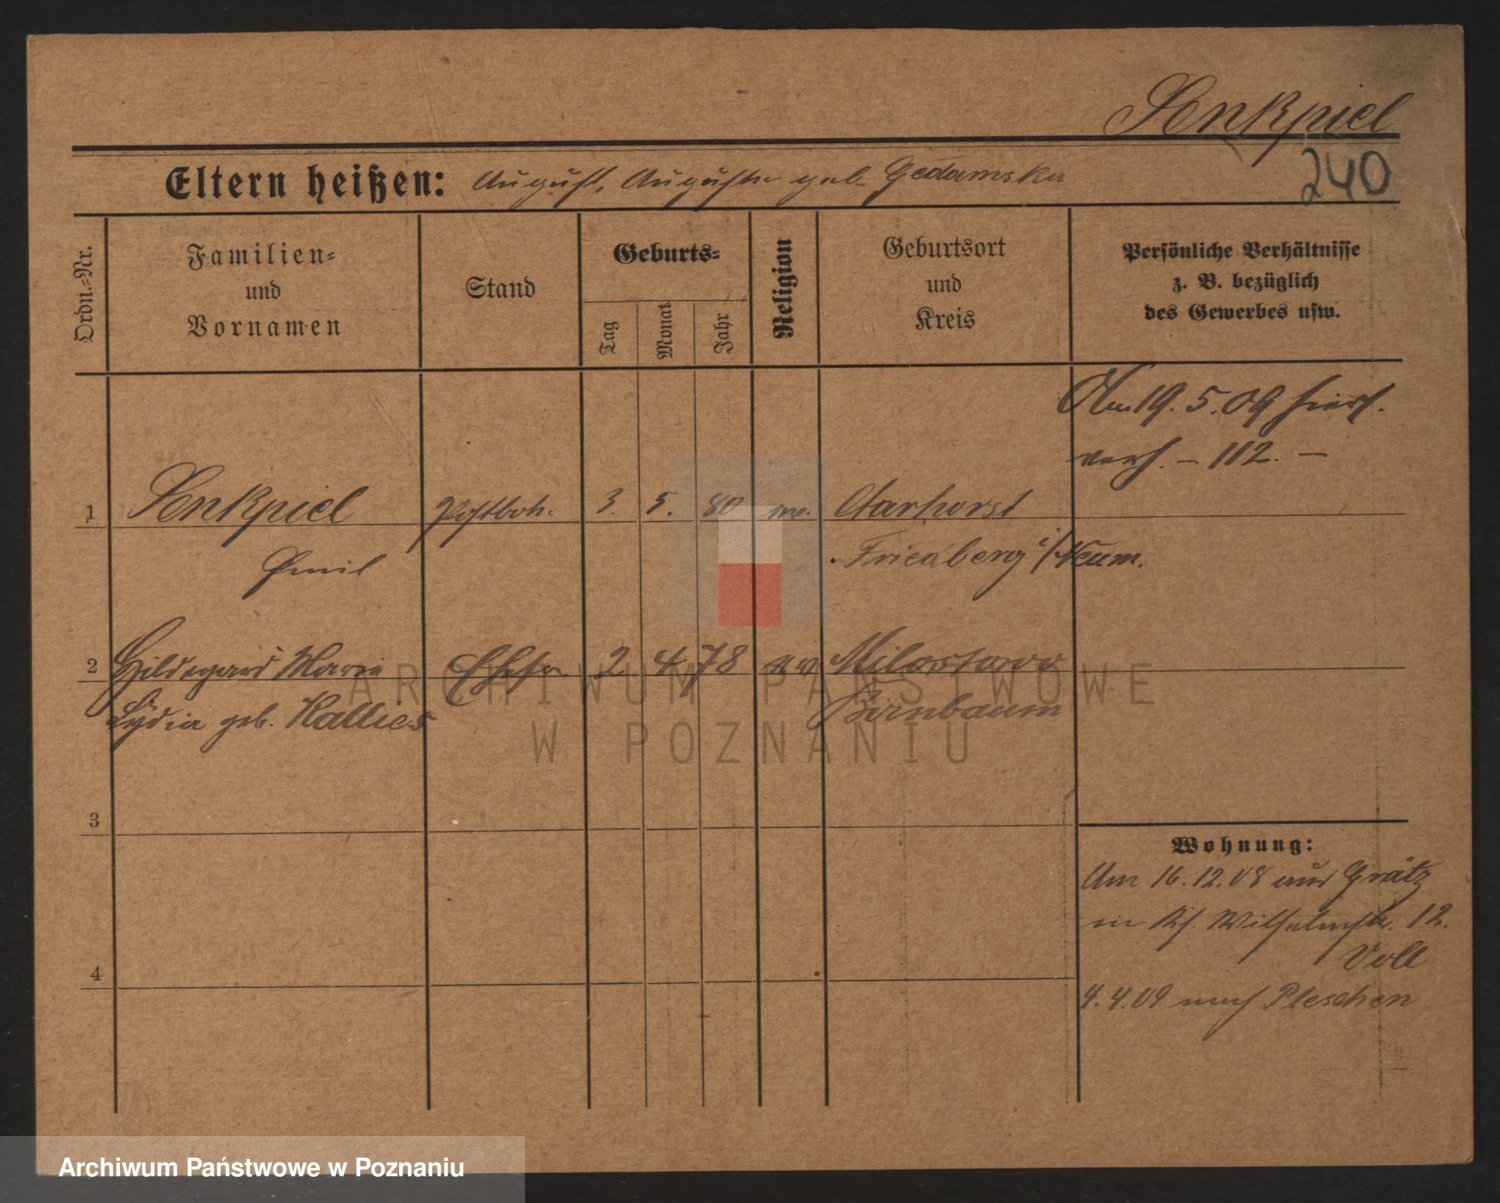 Senkpiel
240
Eltern heißen: August, Auguste geb. Gedamska
Ordn.-Nr.
Familien-
und
Vornamen
Stand
Geburts-
Tag
Monat
Jahr
Religion
Geburtsort
und
Kreis
Persönliche Verhältnisse
z. B. bezüglich
des Gewerbes usw.
Am 19. 5. 09 hier
verh. – 112. –
1 Senkpiel Postbot. 3. 5. 80 ev.
Emil Friedberg i/Neum.
2 Hildegard Marie Ehefr. 2. 4. 78 ev. Milostowo
Lydia geb. Kallies Birnbaum
3
4
Wohnung:
Am 16. 12. 08 aus Grätz
in Wilhelmstr. 12.
Voll
4. 4. 09 nach Pleschen
ARCHIWUM PAŃSTWOWE
W POZNANIU
Archiwum Państwowe w Poznaniu